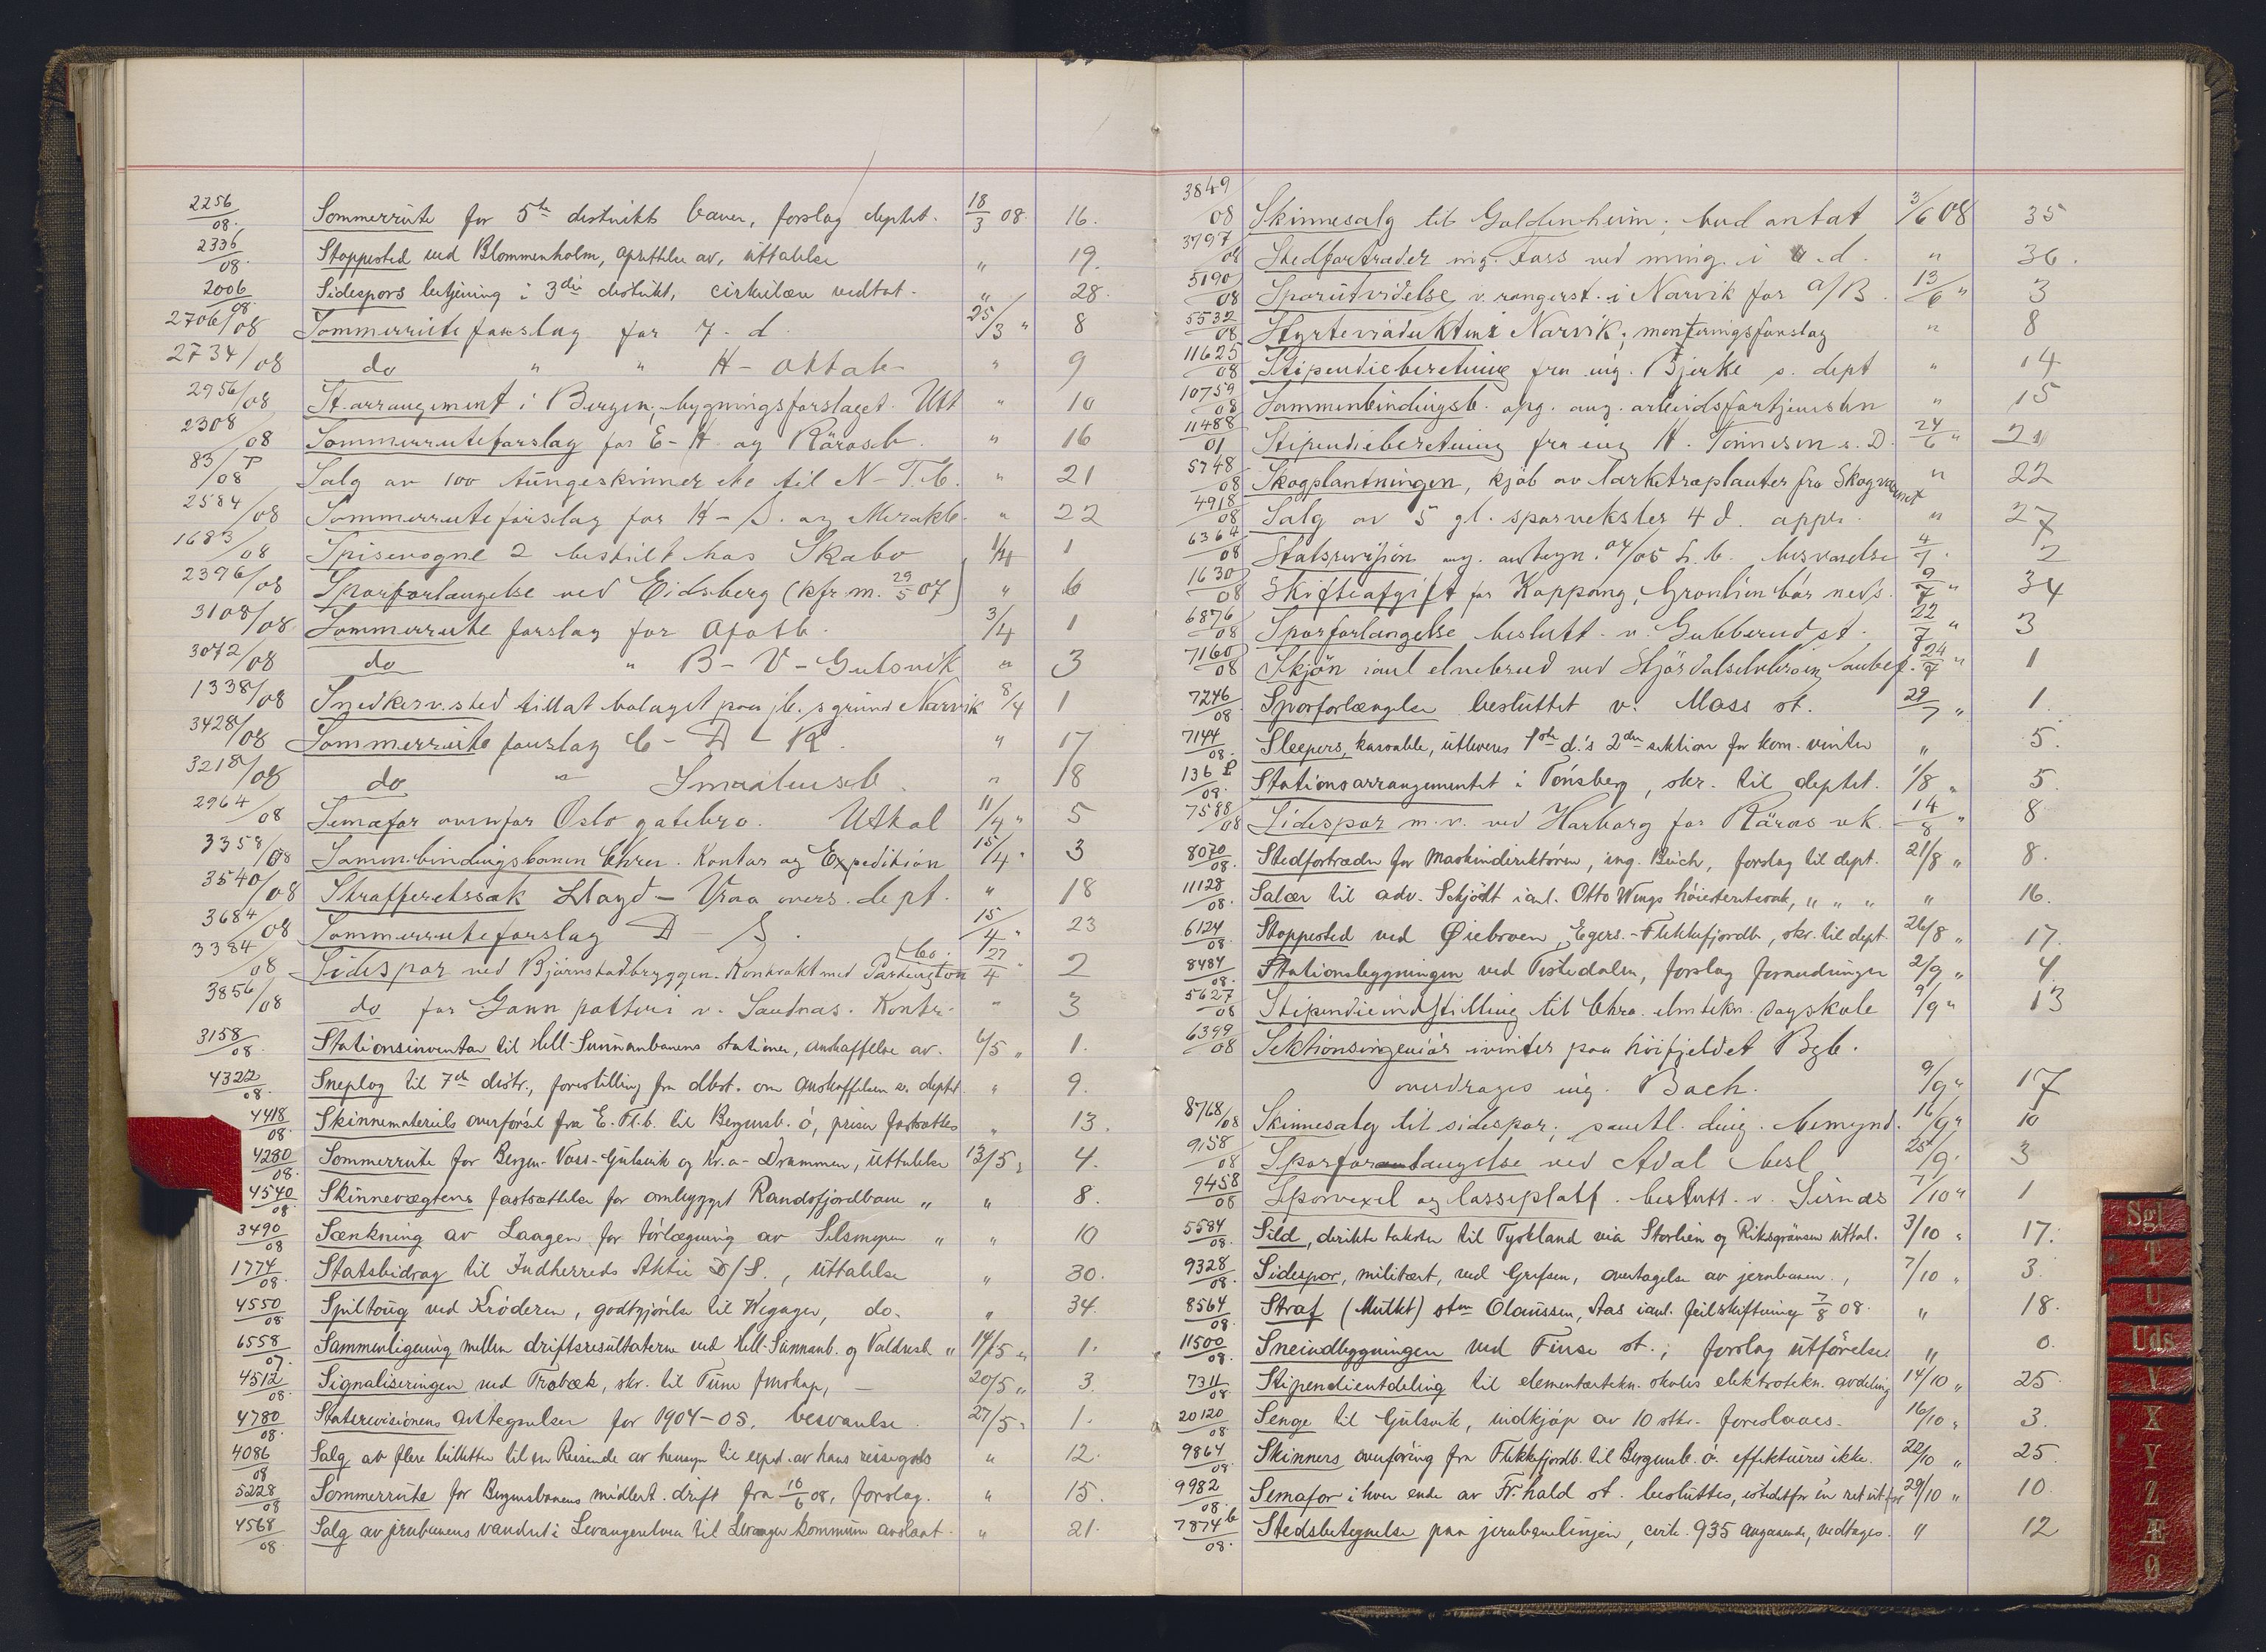 2256/08. Sommerrute for 5te distrikts baner, forslag deptet. 18/3 08. 16.
2336/08. Stoppested ved Blommenholm, oprettelse av, uttalelse " 19.
2006/08. Sidespors betjening i 3die distrikt, cirkulære vedtat. " 28.
2706/08 Sommerruteforslag for 7. d. 25/3 " 8
2734/08 do " " H- " 9
2956/08 St. arrangement i Bergen, bygningsforslaget. Utt " 10
2308/08 Sommerruteforslag for E-H og Rørosb. " 16
83/08 P Salg av 100 tungeskinner etc til N-T.b. " 21
2584/08 Sommerruteforslag for H-S. og Merakb. " 22
1683/08 Spisevogne 2 bestilt hos Skabo 1/4 1
2396/08 Sporforlængelse ved Eidsberg (kfr. m. 29/5 07) " 6
3108/08 Sommerrute forslag for Ofotb. 3/4 1
3072/08 do " B-V-Gulsvik " 3
1338/08 Snedkerv.sted tillat bolaget paa jb.s grund Narvik 8/4 1
3428/08 Sommerrute forslag C-D-R. " 17
3218/08 do " Smaalensb. " 18
2964/08 Semafor ovenfor Oslo gatebro. Uttal 11/4 " 5
3358/08 Sammenbindingsbanen Chren. Kontor og Expedition 15/4 " 3
3540/08 Strafferetssak Lloyd - Vraa overs. dept. " 18
3684/08 Sommerruteforslag D-S. 15/4 " 23
3384/08 Sidespor ved Bjørnstadbryggen. Kontrakt med Pardington & Co. 27/4 " 2
3856/08 do for Gann potteri v. Sandnæs. Kontr. " 3
3158/08. Stationsinventar til Hell-Sunnanbanens stationer, anskaffelse av. 6/5 " 1.
4322/08. Sneplog til 7de distr., forestilling fra dbst. om anskaffelsen s. deptet. " 9.
4418/08. Skinnematerials overførsel fra E. Fl.b. til Bergensb. ø, priser fastsættes " 13.
4280/08. Sommerrute for Bergen-Voss-Gulsvik og Kr.a-Drammen, uttalelse 13/5 " 4.
4540/08. Skinnevægtens fastsættelse for ombygget Randsfjordbane " " 8.
3490/08 Sænkning av Laagen for tørlægning av " " 10
1774/08. Statsbidrag til Indherreds Aktie D/S., uttalelse " 30.
4550/08 Spiltoug ved Krøderen, godtgjørelse til Wegager, do. " 34.
6558/07. Sammenligning mellem driftsresultaterne ved Hell-Sunnanb. og Valdresb. " 14/5 " 1.
4512/08. Signaliseringen ved Træbæk, skr. til Tune Herskap, — 20/5 " 3.
4780/08. Statsrevisionens Antegnelser for 1904-05, besvarelse. 27/5 " 1.
4086/08 Salg av flere billetter til en Reisende av hensyn til exped. av hans reisegods " 12.
5228/08 Sommerrute for Bergensbanens midlert. drift fra 10/6 08, forslag. " 15.
4568/08 Salg av jernbanens vandret i Levangerelven til Levanger kommune avslaat. " 21.
3849/08 Skinnesalg til Goldenheim; bud antat 3/6 08 35
3797/08 Stedfortræder ing. Foss ved ming. i . d. " 36.
5190/08 Sporutvidelse v. rangerst. i Narvik for A/B. 13/6 " 3
5532/08 Styrteviadukten i Narvik; monteringsforslag " 8
11625/08 Stipendieberetning fra ing. Bjerke s. dept " 14
10759/08 Sammenbindingsb. opg. ang. arbeidsfortjenesten " 15
11488/01 Stipendieberetning fra ing H. Tønnesen s. D. 24/6 " 21
5748/08 Skogplantningen, kjøb av lærketræplanter fra Skogvæsenet " 22
4918/08 Salg av 5 gl. sporveksler 4 d. appr. " 27
6364/08 Statsrevision ang. antegn. 04/05 H. b. besvarelse 4/7. 2
1630/08 Skifteafgift for Koppang, Grønlien bør neds. 9/7 " 34
6876/08 Sporforlængelse beslutt. v. Gubberud st. 22/7 " 3
7160/08 Skjøn ianl elvebrud ved Stjørdalselvbroen, anbef. 24/7 " 1
7246/08. Sporforlængelse besluttet v. Moss st. 29/7 " 1.
7144/08. Sleepers, kasable, utleveres 1ste d.'s 2den sektion for kom. vinter " 5.
136 P/08. Stationsarrangementet i Tønsberg, skr. til deptet. 1/8 " 5.
7588/08 Sidespor m.v. ved Harborg for Røros vk. 14/8 " 8
8070/08. Stedfortræder for Maskindirektøren, ing. Buch, forslag til dept. 21/8 " 8.
11128/08. Salær til adv. Schjødt ianl. Otto Wings høiesteretssak, " " " " 16.
6124/08. Stoppested ved Øiebroen, Egers.-Flekkefjordb., skr. til dept. 26/8 " 17.
8484/08. Stationsbygningen ved Tistedalen, forslag forandringer 2/9 " 4.
5627/08 Stipendieindstilling til Chra. elm. tekn. dagskole 9/9 " 13
6399/08 Sektionsingeniør ivinter paa høifjeldet Bgb.
overdrages ing. Bach. 9/9 " 17
8768/08 Skinnesalg til sidespor; samtl. dir. bemynd. 16/9 " 10
9158/08 Sporforlængelse ved Adal besl 25/9. 3
9458/08 Sporvexel og lasseplatf. beslutt. v. Sirnæs 7/10 " 1
5584/08. Sild, direkte takster til Tyskland via Storlien og Riksgränsen uttal. 3/10 " 17.
9328/08. Sidespor, militært, ved Grefsen, overtagelse av jernbanen. , 7/10 " 3.
8564/08. Straf (Mulkt) stm Olaussen, Aas ianl. feilskiftning 7/8 08. " 18.
11500/08. Sneindbygningen ved Finse st.; forslag utførelse " 0.
7311/08. Stipendieutdeling til elementærtekn. skoles elektrotekn. avdeling 14/10 " 25.
20120/08 Senge til Gulsvik, indkjøp av 10 stkr. foreslaaes. 16/10 " 3.
9864/08. Skinners overføring fra Flekkefjordb. til Bergensb. ø. effektueres ikke. 22/10 " 25.
9982/08. Semafor i hver ende av Fr.hald st. besluttes, istedetfor én ret utfor 29/10 " 10.
7874 b/08. Stedsbetegnelse paa jernbanelinjen, cirk. 935 angaaende, vedtages. " 12
Sgl
T
U
Uds
V
X
Y
Z
Æ
Ø